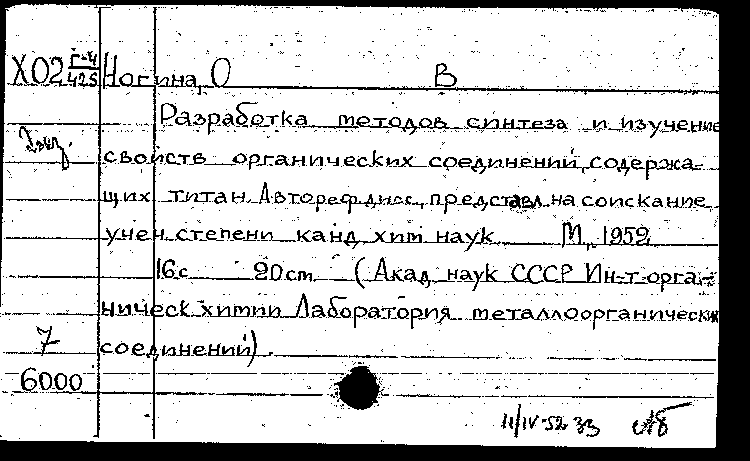 Х02 Г-4/425 Ногина, О В
Разработка методов синтеза и изучение
2экз. свойств органических соединений, содержа-
щих титан. Автореф. дисс., представл. на соискание
учен. степени канд. хим. наук М., 1952
16с 20cm (Акад. наук СССР Ин-т орга-
ническ. химии Лаборатория металлоорганических
7 соединений).
6000
11/IV-52